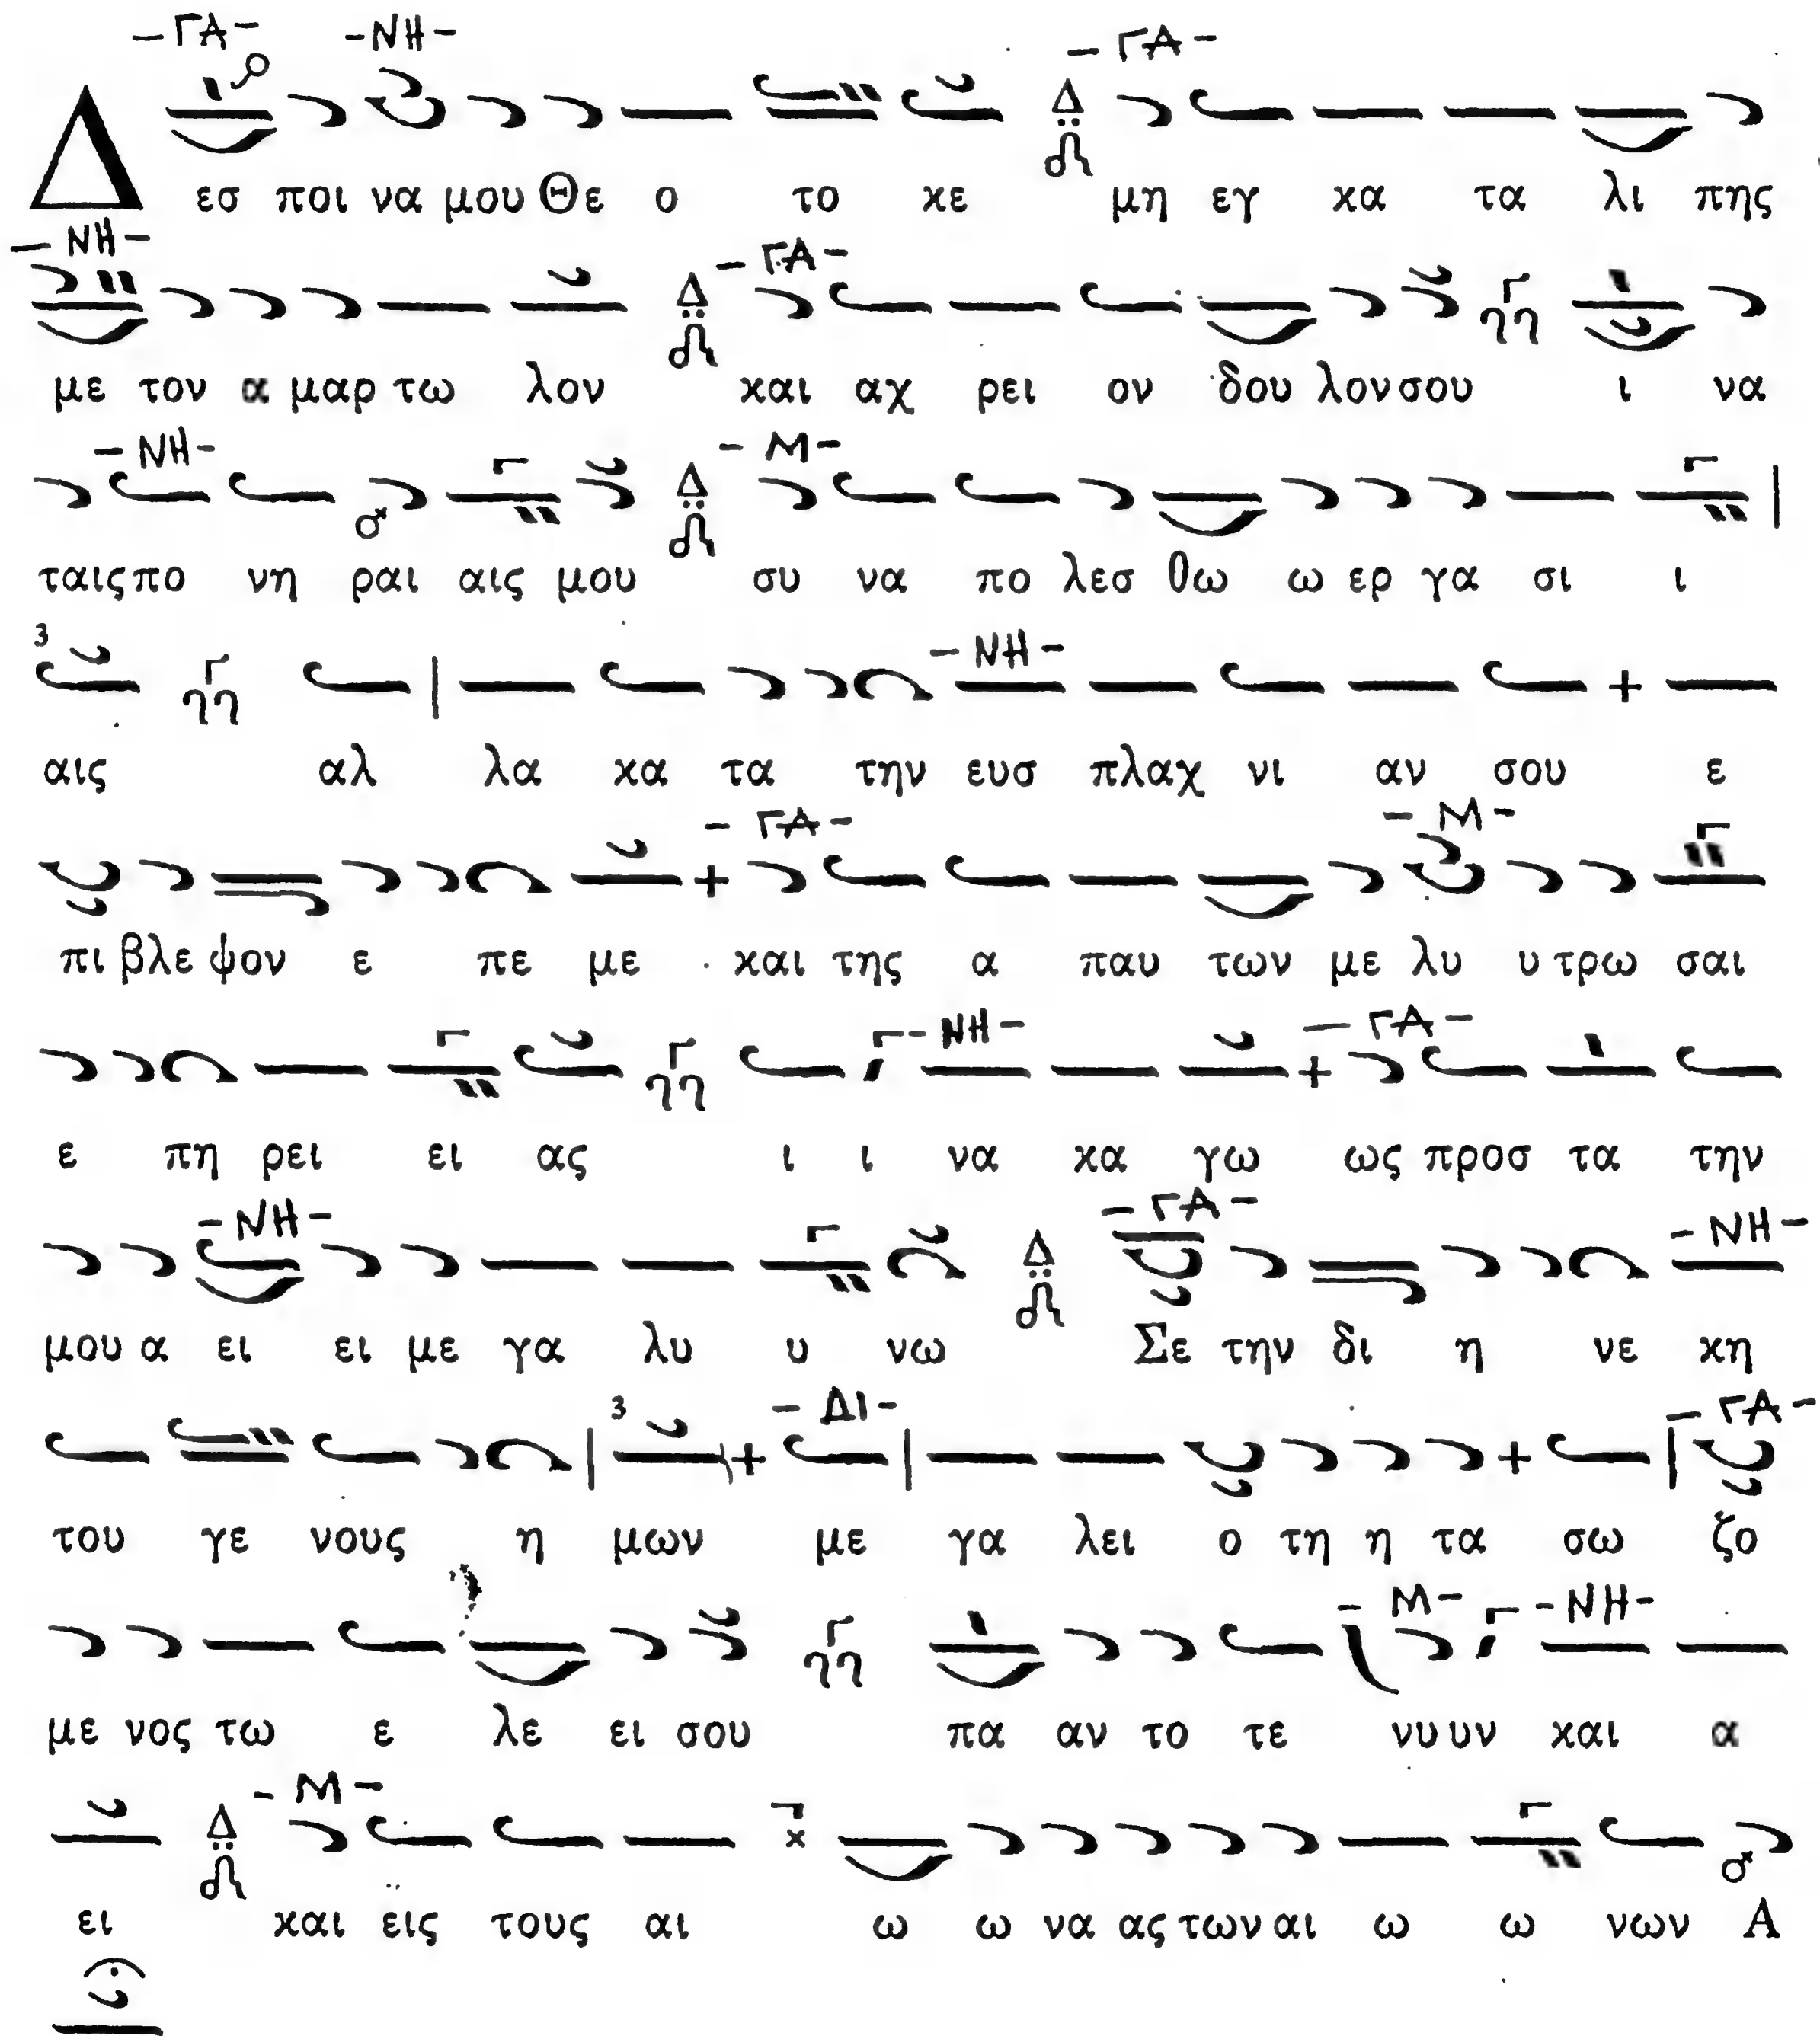 -ΓΑ- -ΝΗ- -ΓΑ-
Δ εσ ποι να μου Θε ο το κε μη εγ κα τα λι πης
-ΝΗ- -ΓΑ-
με τον α μαρ τω λον και αχ ρει ον δου λον σου ι να
-ΝΗ- -Μ-
ταις πο νη ραι αις μου συ να πο λεσ θω ω ερ γα σι ι
-ΝΗ-
αις αλ λα κα τα την ευσ πλαχ νι αν σου ε
-ΓΑ- -Μ-
πι βλε ψον ε πε με και της α παυ των με λυ υ τρω σαι
-ΝΗ- -ΓΑ-
ε πη ρει ει ας ι ι να κα γω ως προσ τα την
-ΝΗ- -ΓΑ- -ΝΗ-
μου α ει ει με γα λυ υ νω Σε την δι η νε κη
-ΔΙ- -ΓΑ-
του γε νους η μων με γα λει ο τη η τα σω ζο
-Μ- -ΝΗ-
με νος τω ε λε ει σου πα αν το τε νυ υν και α
-Μ-
ει και εις τους αι ω ω να ας των αι ω ω νων Α